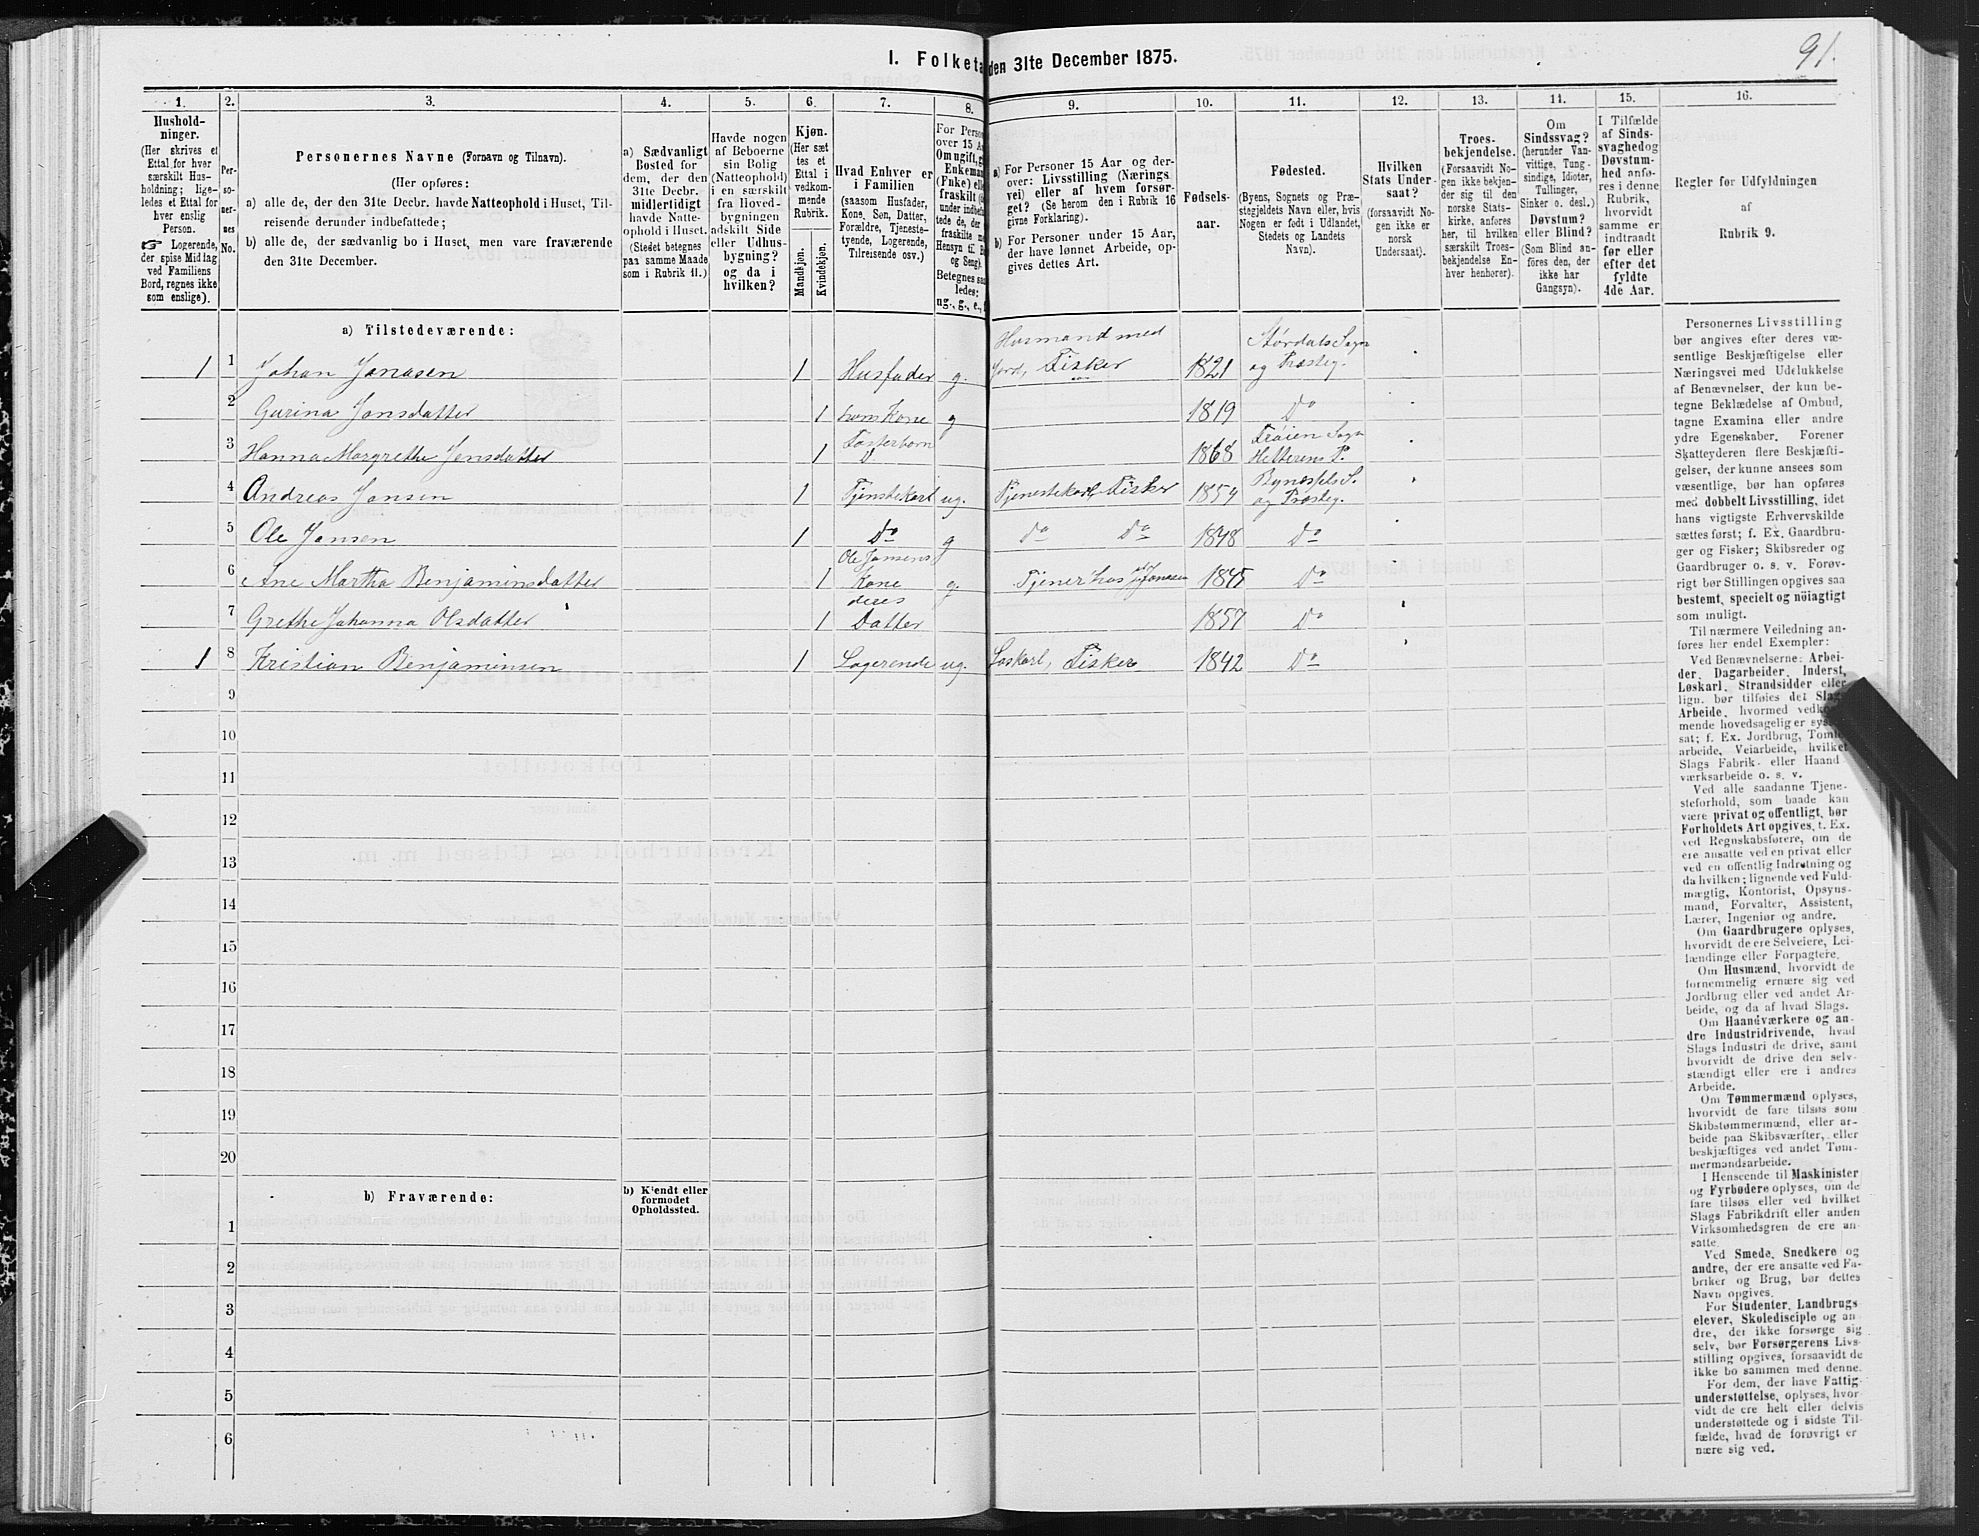 91.
I. Folketa den 31te December 1875.
1. 2. 3. 4. 5. 6. 7. 8. 9. 10. 11. 12. 13. 14. 15. 16.
Hushold-
ninger.
(Her skrives et
Ettal for hver
særskilt Hus-
holdning; lige-
ledes et Ettal for
hver enslig
Person.
☞ Logerende,
der spise Middag
ved Familiens
Bord, regnes ikke
som enslige).
Per-
so-
ner-
nes
No.
Personernes Navne (Fornavn og Tilnavn).
(Her opføres:
a) alle de, der den 31te Decbr. havde Natteophold i Huset, Til-
reisende derunder indbefattede;
b) alle de, der sædvanlig bo i Huset, men vare fraværende
den 31te December.
a) Sædvanligt
Bosted for
dem, der den
31te Decbr.
midlertidigt
havde Natte-
ophold i Huset.
(Stedet betegnes
paa samme Maade
som i Rubrik 11.)
Havde nogen
af Beboerne
sin Bolig
(Natteophold)
i en særskilt
fra Hoved-
bygningen
adskilt Side
eller Udhus-
bygning?
og da i
hvilken?
Kjøn.
(Her sæt
tes et
Ettal i
vedkom-
mende
Rubrik.
Mandkjøn.
Kvindekjøn.
Hvad Enhver er
i Familien
(saasom Husfader,
Kone, Søn, Datter,
Forældre, Tjeneste-
tyende, Logerende,
Tilreisende osv.)
For Perso
over 15 Aa
Om ugift, g
Enkeman
(Enke) ell
fraskilt (
under indbe
tede de, der
fraskilte m
Hensyn til B
og Seng).
Betegnes saa
ledes:
ug., g., e.,
a) For Personer 15 Aar og der-
over: Livsstilling (Nærings
vei) eller af hvem forsør-
get? (Se herom den i Rubrik 16
givne Forklaring).
b) For Personer under 15 Aar,
der have lønnet Arbeide, op-
gives dettes Art.
Fødsels-
aar.
Fødested.
(Byens, Sognets og Præ-
stegjeldets Navn eller, hvis
Nogen er født i Udlandet,
Stedets og Landets
Navn).
Hvilken
Stats Under-
saat?
(forsaavidt No-
gen ikke er
norsk
Undersaat).
Troes-
bekjendelse.
(Forsaavidt No-
gen ikke bekjen-
der sig til den
norske Stats-
kirke, anføres
her, til hvilken
særskilt Troes-
bekjendelse En-
hver henhører).
Om
Sindssvag?
(herunder Van-
vittige, Tung-
sindige, Idioter,
Tullinger,
Sinker o. desl.)
Døvstum?
eller Blind?
(Som Blind an-
føres den, der
ikke har
Gangsyn).
I Tilfælde
af Sinds-
svaghed og
Døvstum-
hed anfø-
res i denne
Rubrik,
hvorvidt
samme er
indtraadt
før eller
efter det
fyldte
4de Aar.
Regler før Udfyldningen
af
Rubrik 9.
a) Tilstedeværende:
1 1 Johan Jonasen 1 Husfader g. Husmand med Jord, Fisker 1821 Størdals Sogn og Præsteg.
2 Gurina Jonsdatter 1 hans Kone g 1819 Do
3 Hanna Margrethe Jensdatter 1 Fosterbarn 1868 Frøien Sogn Hitterens P.
4 Andreas Jansen 1 Tjenstekarl ug. Tjenestekarl, Fisker 1854 Bynæssets S. og Præsteg.
5 Ole Jansen 1 Do g Do Do 1848 Do
6 Ane Martha Benjaminsdatter 1 Ole Jansens Kone g. Tjener hos J. Jonasen 1845 Do
7 Grethe Johanna Olsdatter 1 deres Datter 1857 Do
1 8 Kristian Benjaminsen 1 Logerende ug. Løskarl, Fisker 1842 Do
9
10
11
12
13
14
15
16
17
18
19
20
b) Fraværende:
b) Kjendt eller
formodet
Opholdssted.
1
2
3
4
5
6
Personernes Livsstilling
bør angives efter deres væ-
sentlige Beskjæftigelse eller
Næringsvei med Udelukkelse
af Benævnelser, der kun be-
tegne Beklædelse af Ombud,
tagne Examina eller andre
ydre Egenskaber. Forener
Skatteyderen flere Beskjæfti-
gelser, der kunne ansees som
væsentlige, bør han opføres
med dobbelt Livsstilling, idet
hans vigtigste Erhvervskilde
sættes først; f. Ex. Gaardbru-
ger og Fisker; Skibsreder og
Gaardbruger o. s. v. Forøv-
rigt bør Stillingen opgives saa
bestemt, specielt og nöiagtigt
som muligt.
Til nærmere Veiledning an-
føres her endel Exempler:
Ved Benævnelserne: Arbei-
der, Dagarbeider, Inderst,
Løskarl, Strandsidder eller
lign. bør tilføies det Slags
Arbeide, hvormed vedkom-
mende hovedsagelig er syssel-
sat; f. Ex. Jordbrug, Tomte-
arbeide, Veiarbeide, hvilket
Slags Fabrik- eller Haand-
værksarbeide o. s. v.
Ved alle saadanne Tjene-
steforhold, som baade kan
være privat og offentligt, bør
Forholdets Art opgives, t. Ex.
ved Regnskabsførere, om de
ere ansatte ved en privat eller
ved en offentlig Indretning og
da hvilken; lignende ved Fuld-
mægtig, Kontorist, Opsyns-
mand, Forvalter, Assistent,
Lærer, Ingeniør og andre.
Om Gaardbrugere oplyses,
hvorvidt de ere Selveiere, Lei-
lændinge eller Forpagtere.
Om Husmænd, hvorvidt de
fornemmelig ernære sig ved
Jordbrug eller ved andet Ar-
beide, og da af hvad Slags.
Om Haandværkere og an-
dre Industridrivende, hvad
Slags Industri de drive, samt
hvorvidt de drive den selv-
stændigt eller ere i andres
Arbeide.
Om Tømmermænd oplyses,
hvorvidt de fare tilsøs som
Skibstømmermænd, eller ar-
beide paa Skibsværfter, eller
beskjæftiges ved andet Tøm-
mermandsarbeide.
I Henseende til Maskinister
og Fyrbødere oplyses, om de
fare tilsøs eller ved hvilket
Slags Fabrikdrift eller anden
Virksomhedsgren de ere an-
satte.
Ved Smede, Snedkere og
andre, der ere ansatte ved Fa-
briker og Brug, bør dettes
Navn opgives.
For Studenter, Landbrugs
elever, Skoledisciple og an-
dre, der ikke forsørge sig
selv, bør Forsørgerens Livs-
stilling opgives, forsaavidt de
ikke bo sammen med denne.
For dem, der have Fattig-
understøttelse, oplyses, hvor-
vidt de ere helt eller delvis
understøttede og i sidste Til-
fælde, hvad de forøvrigt er
nære sig ved.